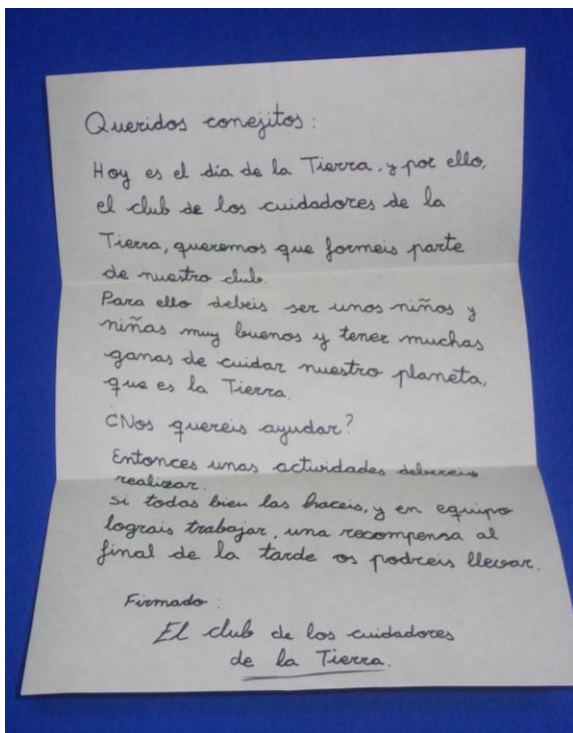 Queridos conejitos:
Hoy es el día de la Tierra, y por ello,
el club de los cuidadores de la
Tierra, queremos que formeis parte
de nuestro club.
Para ello debeis ser unos niños y
niñas muy buenos y tener muchas
ganas de cuidar nuestro planeta,
que es la Tierra.
¿Nos quereis ayudar?
Entonces unas actividades debereis
realizar.
Si todas bien las haceis, y en equipo
lograis trabajar, una recompensa al
final de la tarde os podreis llevar.
Firmado:
El club de los cuidadores
de la Tierra.